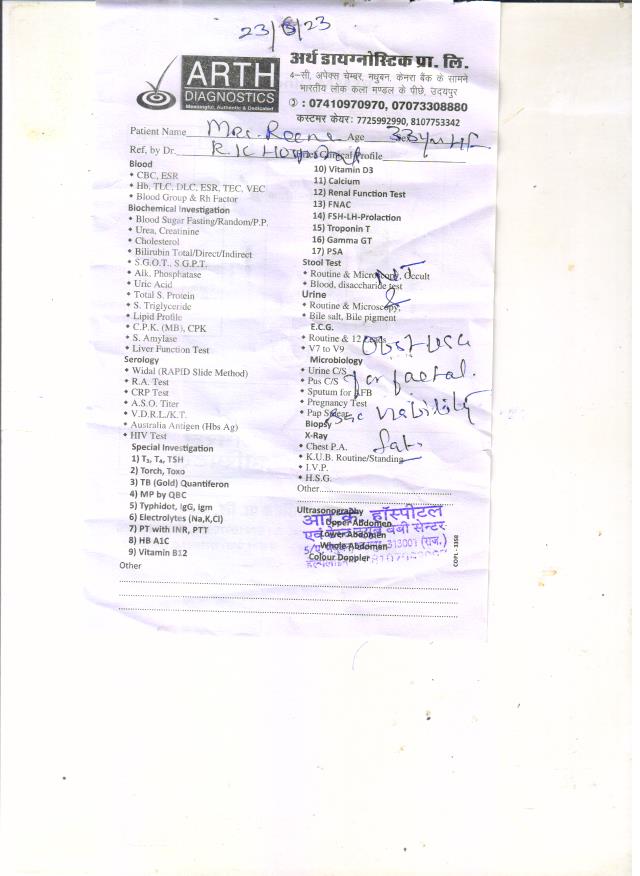 23/6/23
ARTH
DIAGNOSTICS
Meaningful, Authentic & Dedicated
अर्थ डायग्नोस्टिक प्रा. लि.
4–सी, अपेक्स चेम्बर, मधुबन, केनरा बैंक के सामने
भारतीय लोक कला मण्डल के पीछे, उदयपुर
: 07410970970, 07073308880
कस्टमर केयर: 7725992990, 8107753342
Patient Name Mrs. Reena Age 33 yr
Ref, by Dr. R K Hospital Profile
Blood
CBC, ESR
Hb, TLC, DLC, ESR, TEC, VEC
Blood Group & Rh Factor
Biochemical Investigation
Blood Sugar Fasting/Random/P.P.
Urea, Creatinine
Cholesterol
Bilirubin Total/Direct/Indirect
S.G.O.T., S.G.P.T.
Alk. Phosphatase
Uric Acid
Total S. Protein
S. Triglyceride
Lipid Profile
C.P.K. (MB), CPK
S. Amylase
Liver Function Test
Serology
Widal (RAPID Slide Method)
R.A. Test
CRP Test
A.S.O. Titer
V.D.R.L./K.T.
Australia Antigen (Hbs Ag)
HIV Test
Special Investigation
1) T₃, T₄, TSH
2) Torch, Toxo
3) TB (Gold) Quantiferon
4) MP by QBC
5) Typhidot, IgG, igm
6) Electrolytes (Na,K,Cl)
7) PT with INR, PTT
8) HB A1C
9) Vitamin B12
Other
10) Vitamin D3
11) Calcium
12) Renal Function Test
13) FNAC
14) FSH-LH-Prolaction
15) Troponin T
16) Gamma GT
17) PSA
Stool Test
Routine & Microscopy, Occult
Blood, disaccharide test
Urine
Routine & Microscopy,
Bile salt, Bile pigment
E.C.G.
Routine & 12 Leads
V7 to V9
Obst USG
Microbiology
Urine C/S
Pus C/S
for foetal
Sputum for AFB
Pregnancy Test
Pap Smear
viability
Biopsy
X-Ray
Chest P.A.
K.U.B. Routine/Standing
I.V.P.
H.S.G.
Other
Ultrasonography
आर.के. हॉस्पीटल
Upper Abdomen
Lower Abdomen
बेबी सेन्टर
Whole Abdomen
313001 (राज.)
Colour Doppler
COPL - 3358